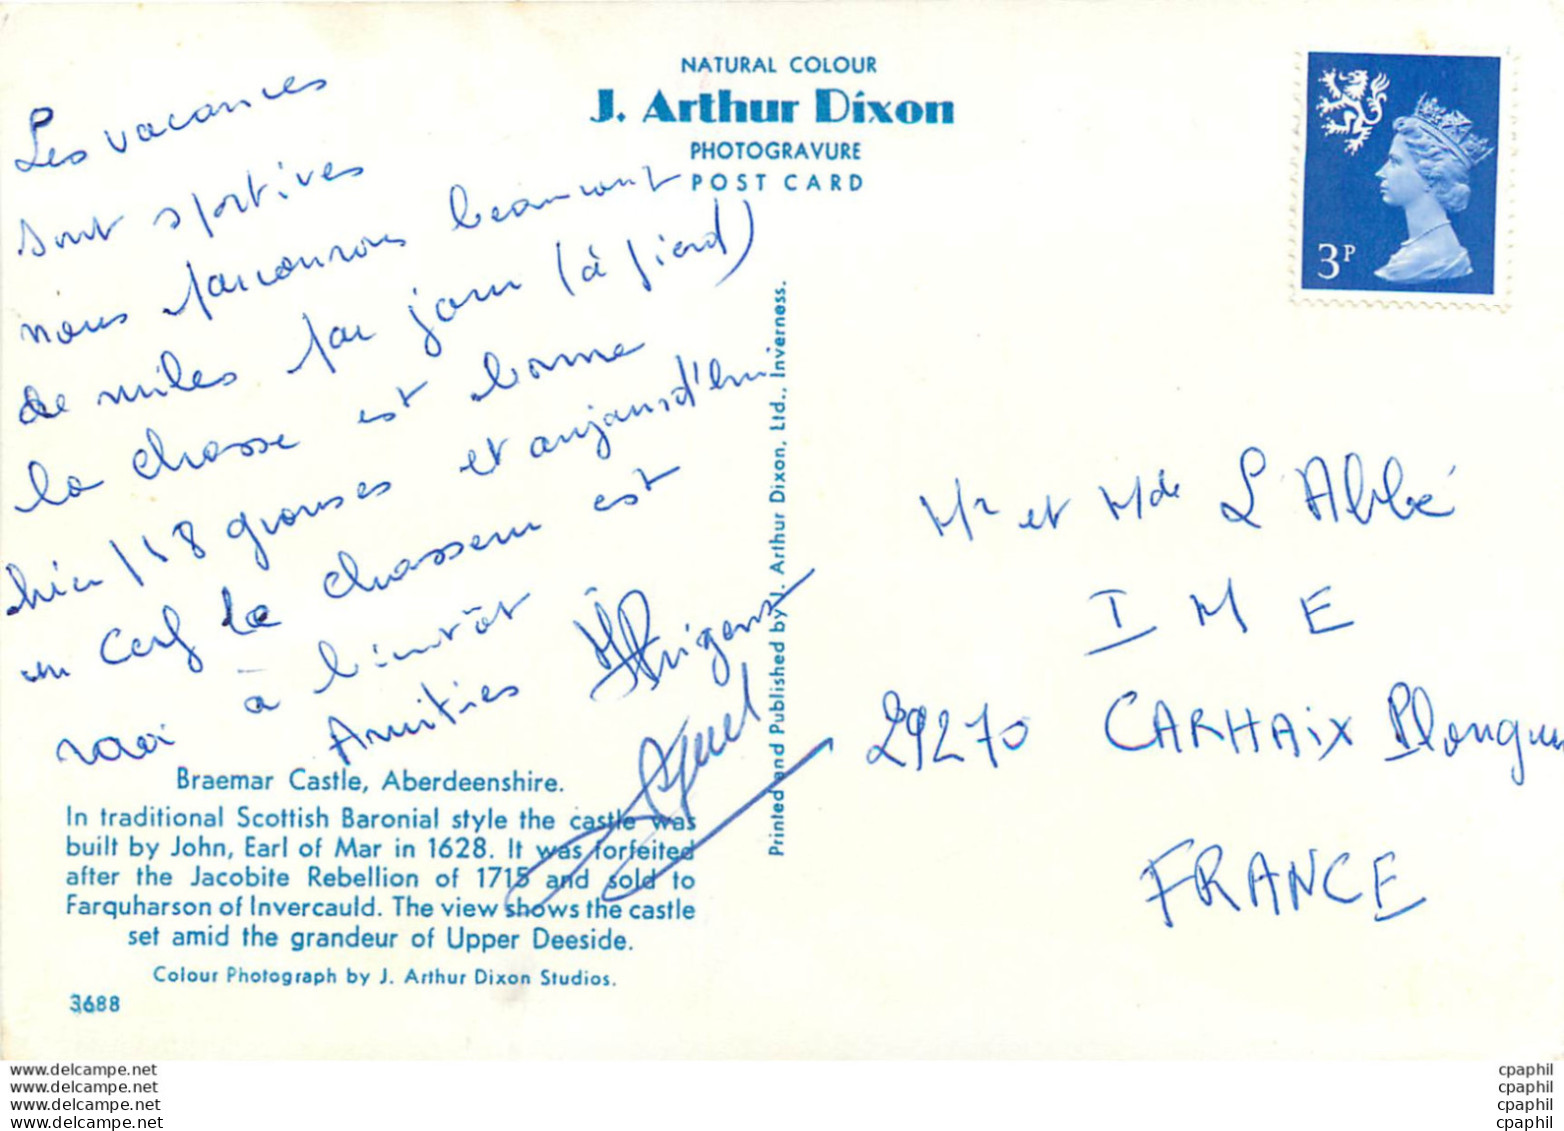 NATURAL COLOUR
J. Arthur Dixon
PHOTOGRAVURE
POST CARD
3P
Les vacances
sont sportives
nous parcourons beaucoup
de miles par jour (à pied)
la chasse est bonne
hier 118 grouses et aujourd'hui
un cerf le chasseur est
ravi à bientôt
Amitiés
Mr et Mde L'Abbé
I M E
29270 CARHAIX Plouguer
FRANCE
Printed and Published by J. Arthur Dixon, Ltd., Inverness.
Braemar Castle, Aberdeenshire.
In traditional Scottish Baronial style the castle was
built by John, Earl of Mar in 1628. It was forfeited
after the Jacobite Rebellion of 1715 and sold to
Farquharson of Invercauld. The view shows the castle
set amid the grandeur of Upper Deeside.
Colour Photograph by J. Arthur Dixon Studios.
3688
www.delcampe.net
www.delcampe.net
www.delcampe.net
www.delcampe.net
cpaphil
cpaphil
cpaphil
cpaphil